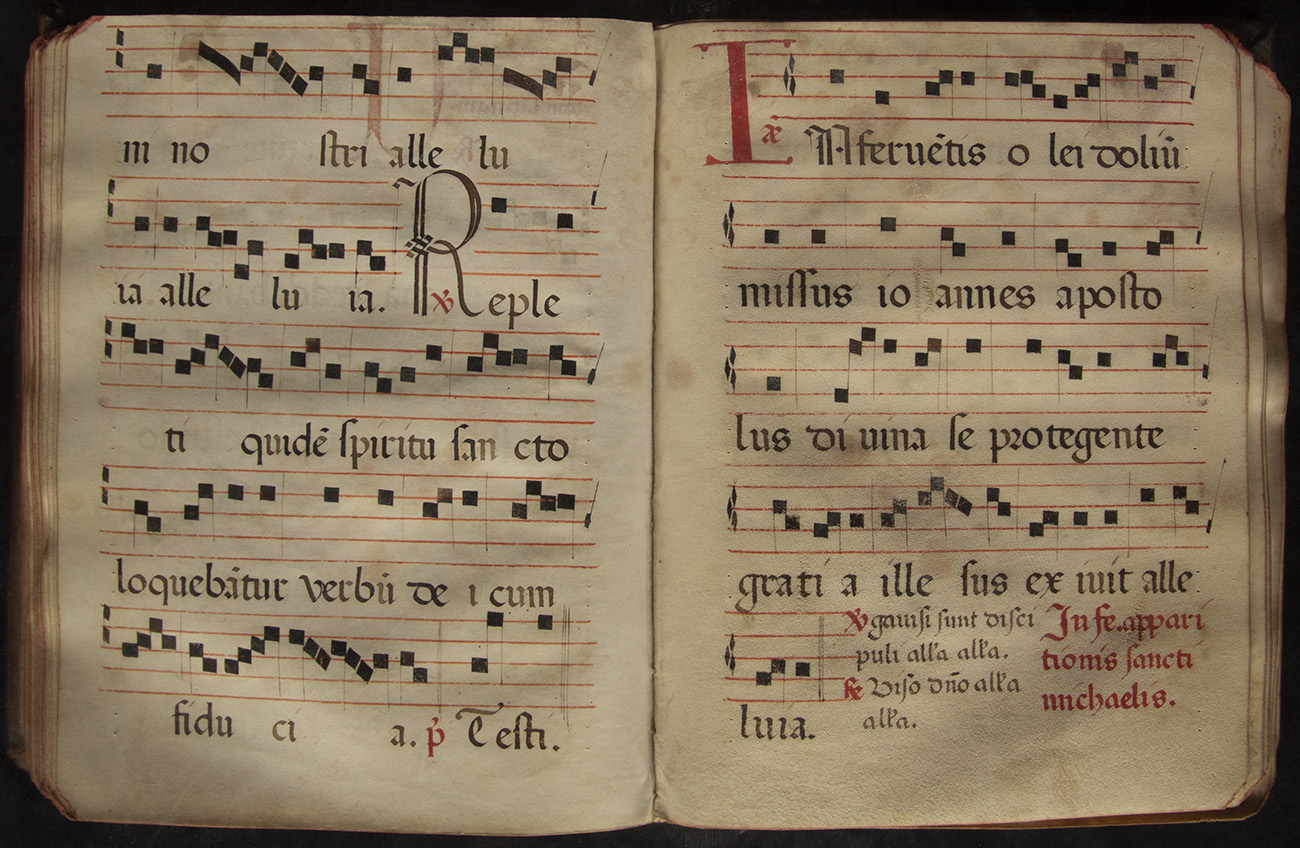 ni no stri alle lu
ia alle lu ia. ℣ Reple
ti quidē spiritu san cto
loquebātur verbū de i cum
fidu ci a. p̄ Testi.
I
añ
feruētis o lei doliū
missus io annes aposto
lus di uina se protegente
grati a ille sus ex iuit alle
luia.
℣ gauisi sunt disci
puli alľa alľa.
Viso dño alľa
alľa.
In fe. appari
tionis sancti
michaelis.